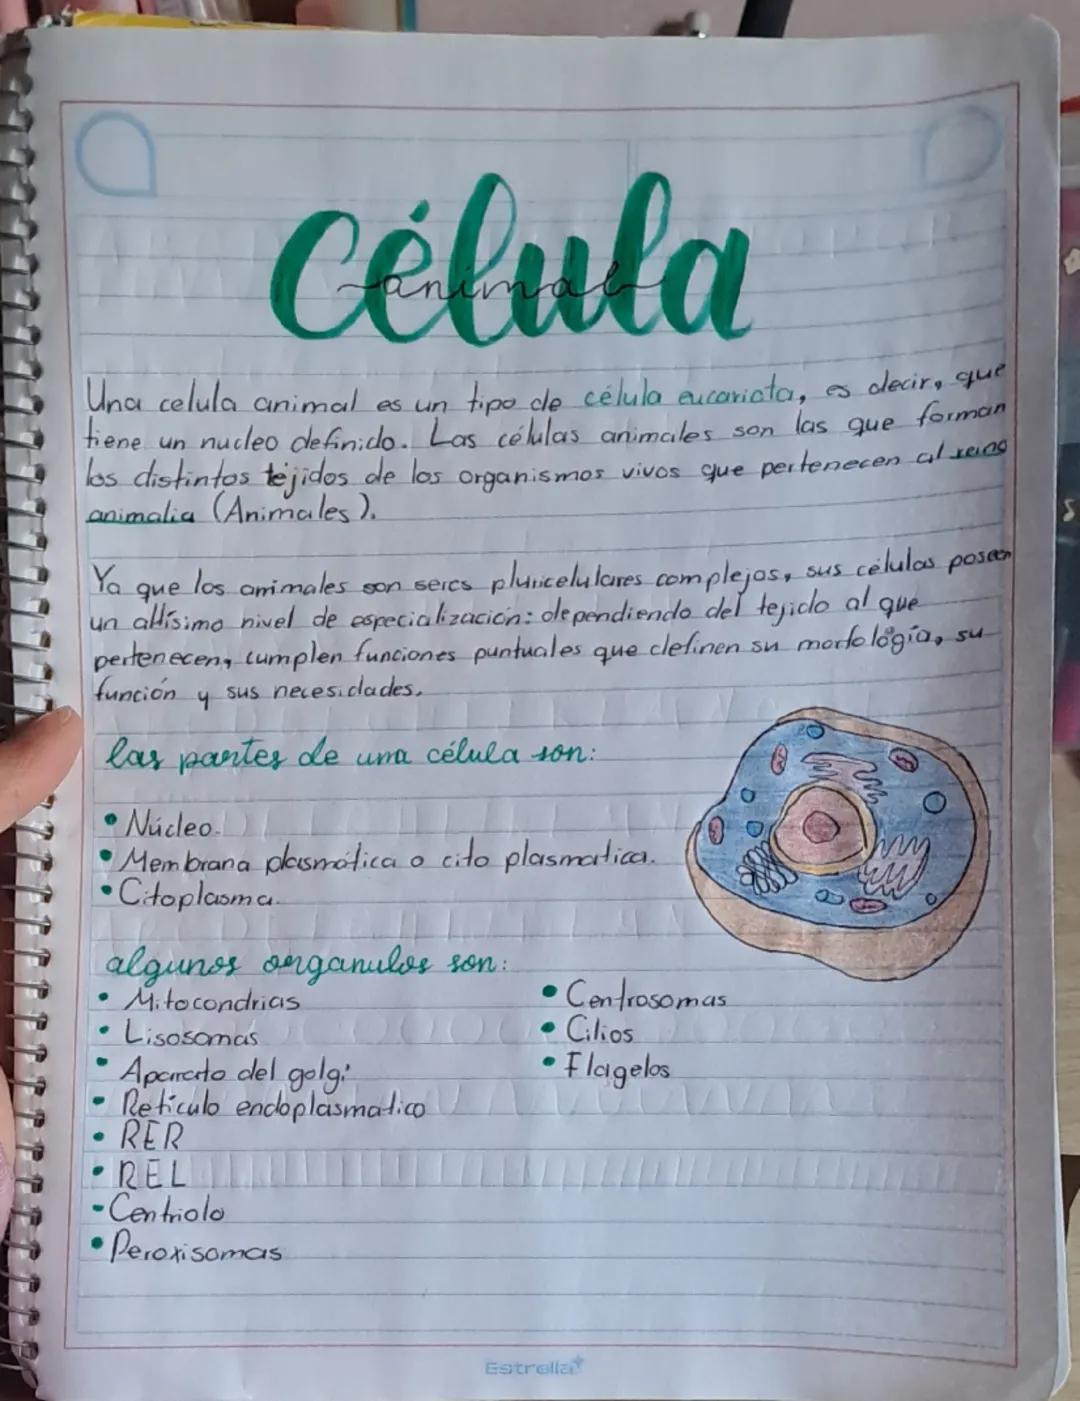 Célula
animal
Una celula animal es un tipo de célula eucariota, es decir, que
tiene un nucleo definido. Las células animales son las que forman
los distintos tejidos de los organismos vivos que pertenecen al reino
animalia (Animales).
Ya que los animales son seres pluricelulares complejos, sus células poseen
un altísimo nivel de especialización: dependiendo del tejido al que
pertenecen, cumplen funciones puntuales que definen su morfología, su
función y sus necesidades.
las partes de una célula son:
• Núcleo.
• Membrana plasmática o cito plasmatica.
• Citoplasma.
algunos organulos son:
• Mitocondrias
• Lisosomas
• Aparato del golgi
• Retículo endoplasmatico
• RER
• REL
• Centriolo
• Peroxisomas
• Centrosomas
• Cilios
• Flagelos
Estrella